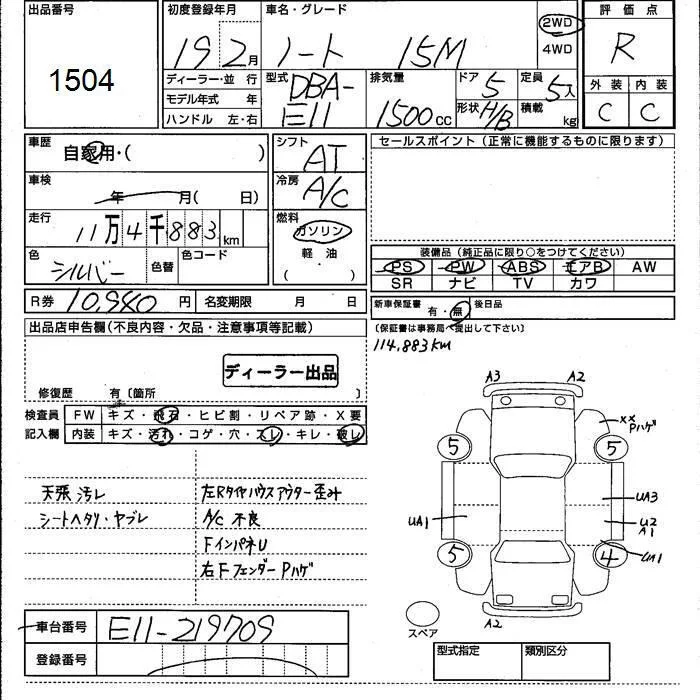 出品番号
1504
初度登録年月
19 2月
車名・グレード
ノート 15M
2WD
4WD
評価点
R
外装 内装
C C
ディーラー・並行
モデル年式 年
ハンドル 左・右
型式
DBA-
E11
排気量
1500cc
ドア 5
形状 H/B
定員 5人
積載 kg
車歴
自家用・( )
車検
年 月( 日)
走行
11万4千883km
色
シルバー
色替
色コード
シフト
AT
冷房
A/C
燃料
ガソリン
軽・油
( ・ )
セールスポイント(正常に機能するものに限ります)
装備品(純正品に限り○をつけてください)
PS PW ABS エアB AW
SR ナビ TV カワ
R券 10,980円 名変期限 月 日
新車保証書
有・無
後日品
(保証書は事務局へ提出して下さい)
114,883km
出品店申告欄(不良内容・欠品・注意事項等記載)
ディーラー出品
修復歴 有〔箇所 〕
検査員
記入欄
FW キズ・飛石・ヒビ割・リペア跡・X要
内装 キズ・汚れ・コゲ・穴・スレ・キレ・破レ
天張汚レ
シートヘタリ・ヤブレ
左Rタイヤハウスアウター歪み
A/C 不良
FインパネU
右FフェンダーPハゲ
A3 A2
××
Pハゲ
5 5
UA3
UA1
U2
A1
UA1
5 4
A2
スペア
車台番号 E11-219709
登録番号
型式指定 類別区分